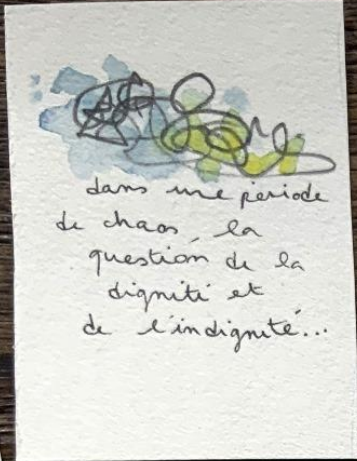 dans une periode
de chaos, la
question de la
dignité et
de l'indignité...